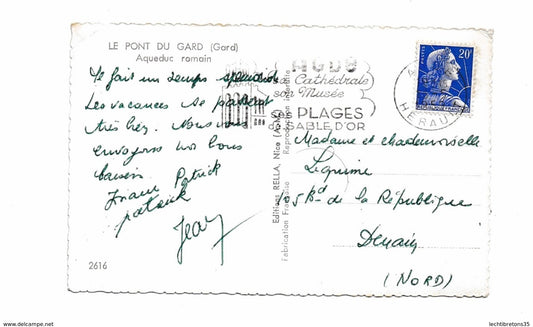 LE PONT DU GARD (Gard)
Aqueduc romain
Il fait un temps splendide
Les vacances se passent
très bien. Nous vous
envoyons nos bons
baisers.
Patrick
Jean
2616
Editions RELLA, Nice
Fabrication Française
Reproduction interdite
AGDE
sa Cathédrale
son Musée
ses PLAGES
SABLE D'OR
20F
HERAULT
Madame et Mademoiselle
Lequime
105 Bd de la République
Denain
(NORD)
lechtibretons35